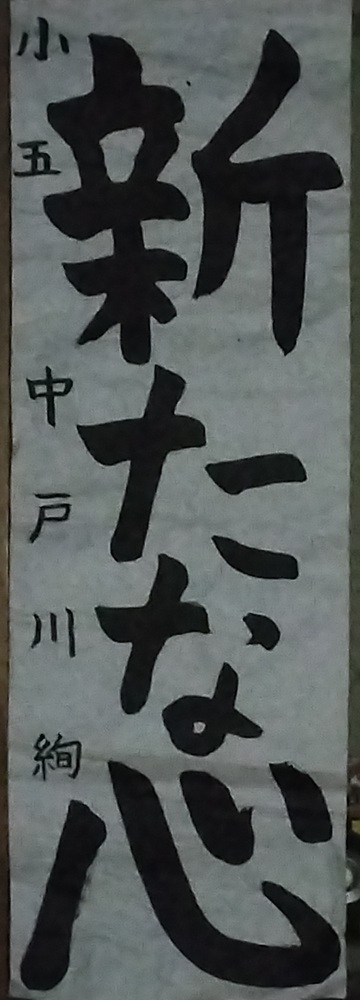 新たな心
小五 中戸川絢